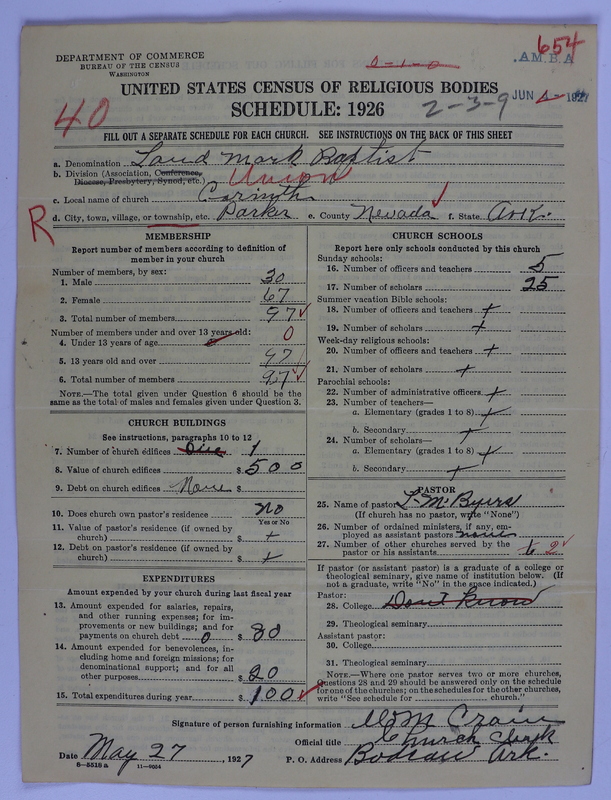 654
DEPARTMENT OF COMMERCE
BUREAU OF THE CENSUS
WASHINGTON
0-1-0
.A.M.B.A
UNITED STATES CENSUS OF RELIGIOUS BODIES
SCHEDULE: 1926
40
2-3-9
JUN 1927
FILL OUT A SEPARATE SCHEDULE FOR EACH CHURCH. SEE INSTRUCTIONS ON THE BACK OF THIS SHEET
a. Denomination Land Mark Baptist
b. Division (Association, Conference, Diocese, Presbytery, Synod, etc.) Union
c. Local name of church Corinth
d. City, town, village, or township, etc. Parker e. County Nevada f. State Ark.
R
MEMBERSHIP
Report number of members according to definition of
member in your church
Number of members, by sex:
1. Male 30
2. Female 67
3. Total number of members 97
Number of members under and over 13 years old:
4. Under 13 years of age 0
5. 13 years old and over 97
6. Total number of members 97
NOTE.—The total given under Question 6 should be
same as the total of males and females given under Question 3.
CHURCH BUILDINGS
See instructions, paragraphs 10 to 12
7. Number of church edifices One 1
8. Value of church edifices $ 500
9. Debt on church edifices None $
10. Does church own pastor's residence No
Yes or No
11. Value of pastor's residence (if owned by
church) $ +
12. Debt on pastor's residence (if owned by
church) $ +
EXPENDITURES
Amount expended by your church during last fiscal year
13. Amount expended for salaries, repairs,
and other running expenses; for im-
provements or new buildings; and for
payments on church debt 0 $ 80
14. Amount expended for benevolences, in-
cluding home and foreign missions; for
denominational support; and for all
other purposes $ 20
15. Total expenditures during year $ 100
CHURCH SCHOOLS
Report here only schools conducted by this church
Sunday schools:
16. Number of officers and teachers 5
17. Number of scholars 25
Summer vacation Bible schools:
18. Number of officers and teachers +
19. Number of scholars +
Week-day religious schools:
20. Number of officers and teachers +
21. Number of scholars +
Parochial schools:
22. Number of administrative officers +
23. Number of teachers—
a. Elementary (grades 1 to 8) +
b. Secondary +
24. Number of scholars—
a. Elementary (grades 1 to 8) +
b. Secondary +
PASTOR
25. Name of pastor L. M. Byers
(If church has no pastor, write "None")
26. Number of ordained ministers, if any, em-
ployed as assistant pastors none
27. Number of other churches served by the
pastor or his assistants 2
If pastor (or assistant pastor) is a graduate of a college or
theological seminary, give name of institution below. (If
not a graduate, write "No" in the space indicated.)
Pastor:
28. College Dont Know
29. Theological seminary
Assistant pastor:
30. College
31. Theological seminary
NOTE.—Where one pastor serves two or more churches,
Questions 28 and 29 should be answered only on the schedule
for one of the churches; on the schedules for the other churches,
write "See schedule for church."
Signature of person furnishing information W M Crain
Official title Church Clerk
Date May 27, 1927 P. O. Address Bodcaw Ark.
8—5518 a 11—9054